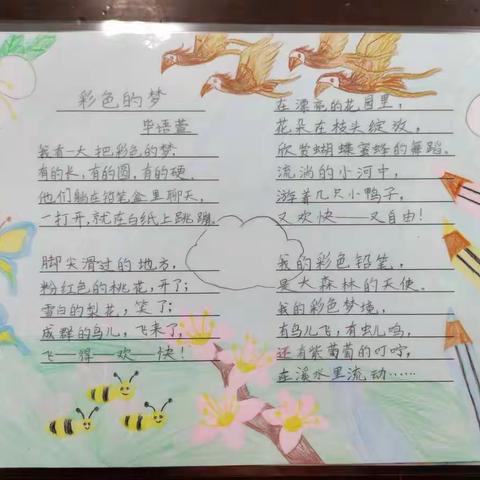 彩色的梦
毕语萱
我有一大把彩色的梦.
有的长,有的圆,有的硬.
他们躺在铅笔盒里聊天,
一打开,就在白纸上跳蹦.
脚尖滑过的地方,
粉红色的桃花,开了;
雪白的梨花,笑了;
成群的鸟儿,飞来了,
飞——得——欢——快!
在漂亮的花园里,
花朵在枝头绽放,
欣赏蝴蝶蜜蜂的舞蹈。
流淌的小河中,
游着几只小鸭子,
又欢快——又自由!
我的彩色铅笔,
是大森林的天使。
我的彩色梦境,
有鸟儿飞,有虫儿鸣,
还有紫葡萄的叮咛,
在溪水里流动……